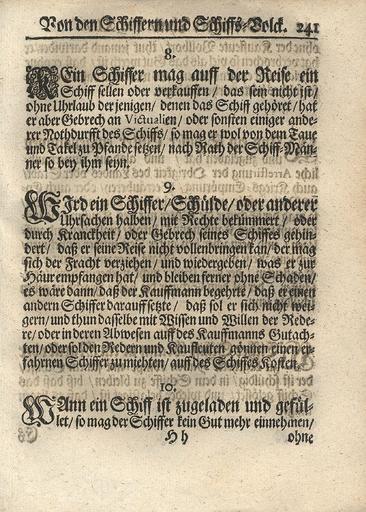 Von den Schiffern und Schiffs-Volck. 241
8.
KEin Schiffer mag auff der Reise ein
Schiff sellen oder verkauffen / das sein nicht ist /
ohne Uhrlaub der jenigen / denen das Schiff gehöret / hat
er aber Gebrech an Victualien / oder sonsten einiger ande-
rer Nothdurfft des Schiffs / so mag er wol von dem Taue
und Takel zu Pfande setzen / nach Rath der Schiff-Män-
ner so bey ihm seyn.
9.
WIrd ein Schiffer / Schülde / oder anderer
Uhrsachen halben / mit Rechte bekümmert / oder
durch Kranckheit / oder Gebrech seines Schiffes gehin-
dert / daß er seine Reise nicht vollenbringen kan / der mag
sich der Fracht verziehen / und wiedergeben / was er zur
Häure empfangen hat / und bleiben ferner ohne Schaden /
es wäre dann / daß der Kauffmann begehrte / daß er einen
andern Schiffer darauff setzte / daß sol er sich nicht wei-
gern / und thun dasselbe mit Wissen und Willen der Rede-
re / oder in deren Abwesen auff des Kauffmanns Gutach-
ten / oder sol den Redern und Kauffleuten gönnen einen er-
fahrnen Schiffer zu miehten / auff des Schiffes Kosten.
10.
WAnn ein Schiff ist zugeladen und gefül-
let / so mag der Schiffer kein Gut mehr einnehmen /
H h ohne